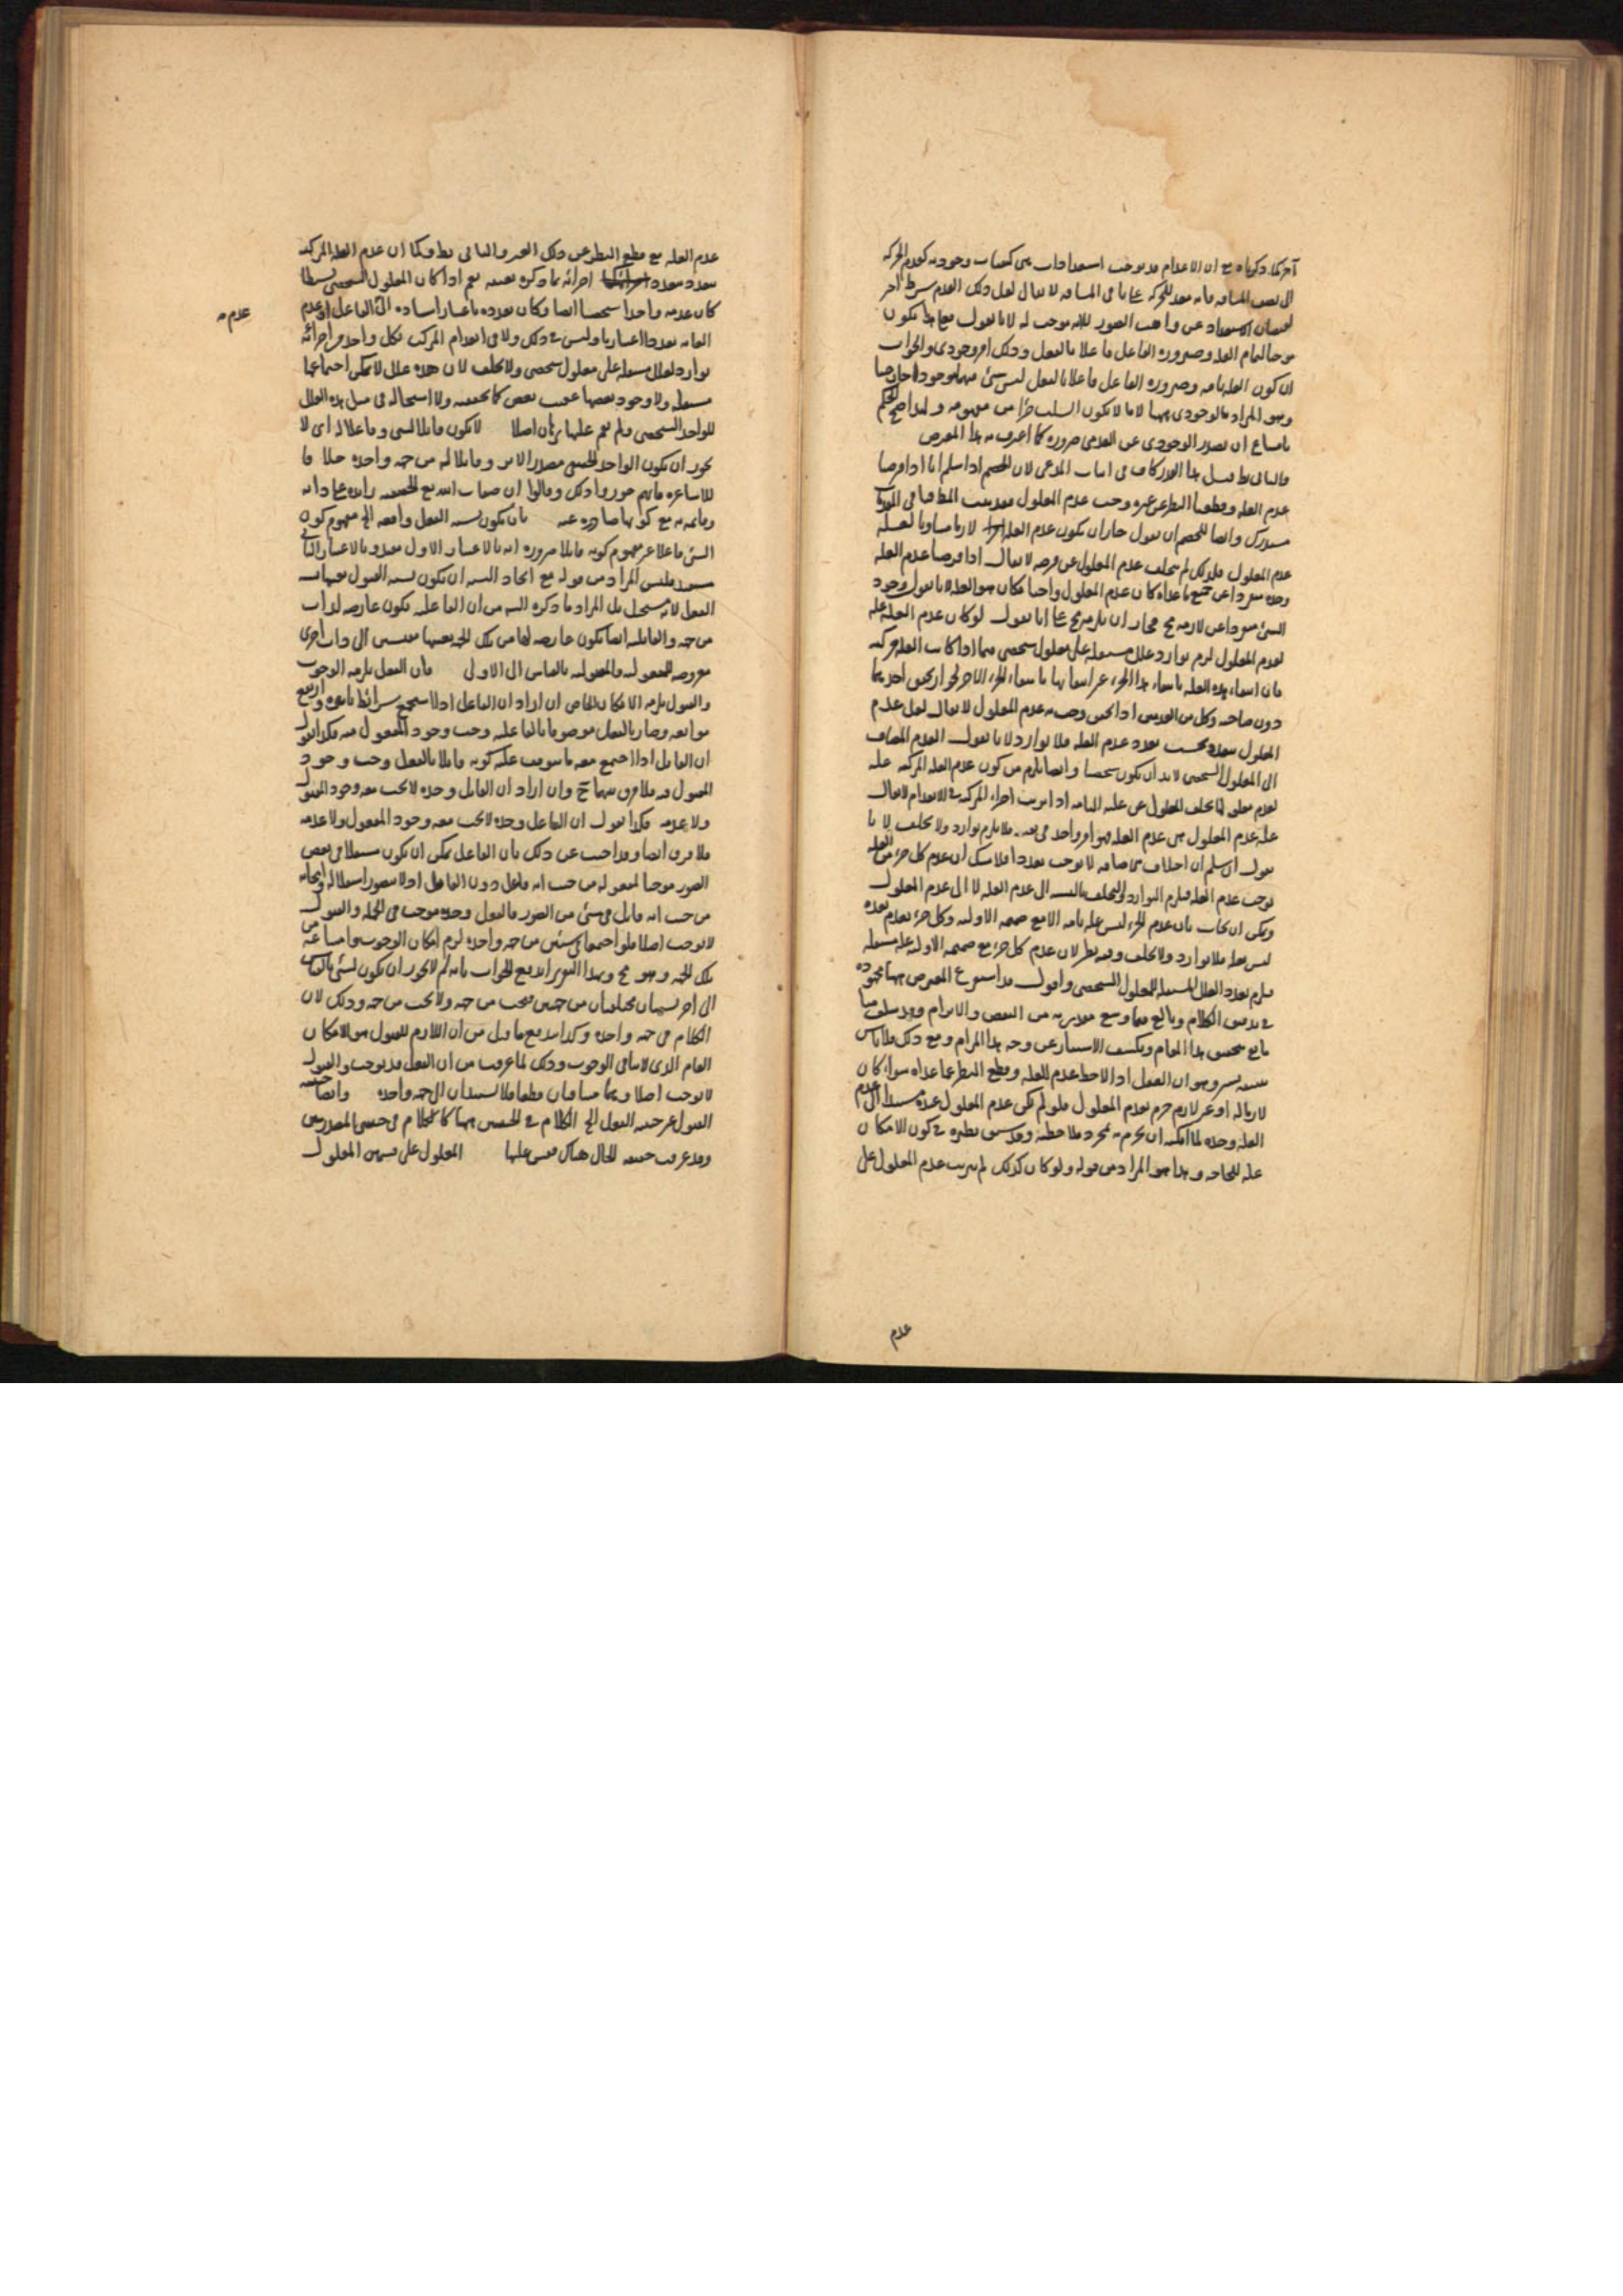 آخر كما ذكرناه مع ان الاعدام قد يوجب استعدادات هى كيفيات وجودية كعدم الحركة
الى نصف المسافة فانه معد للحركة لا يقال لعل ذلك العدم شرط آخر
لفيضان الاستعداد عن واهب الصور لا لانه موجب له لانا نقول
موجبا لتمام العلة وصيرورة الفاعل فاعلا بالفعل وذلك امر وجودى والجواب
ان كون العلة تامة وصيرورة الفاعل فاعلا بالفعل ليس شئ منهما موجودا خارجيا
وهو المراد بالوجودى ههنا لا ما لا يكون السلب جزأ من مفهومه ولهذا صح الحكم
بامتناع ان يصدر الوجودى عن العدمى ضرورة كما اعترف به هذا المعترض
فالتالى بط قيل هذا القدر كاف فى اثبات المدعى لان الخصم اذا سلم انا اذا فرضنا
عدم العلة وقطعنا النظر عن غيره وجب عدم المعلول فقد ثبت المط فباقى المقدمات
مستدرك وايضا للخصم ان يقول جاز ان يكون عدم العلة لازما مساويا لعلة
عدم المعلول فلذلك لم يتخلف عدم المعلول عن فرضه لا يقال اذا فرضنا عدم العلة
وحده منفردا عن جميع ما عداه كان عدم المعلول واجبا فكان هو العلة لانا نقول وجود
الشئ منفردا عن لازمه مح فجاز ان يلزمه مح على انا نقول لو كان عدم العلة علة
لعدم المعلول لزم توارد علل مستقلة على معلول شخصى فيما اذا كانت العلة مركبة
فان انتفاء هذه العلة بانتفاء هذا الجزء غير انتفائها بانتفاء الجزء الآخر لجواز تحقق احدهما
دون صاحبه وكل من العدمين اذا تحقق وجب به عدم المعلول لا يقال لعل عدم
المعلول متعدد بحسب تعدد عدم العلة فلا توارد لانا نقول العدم المضاف
الى المعلول الشخصى لا بد ان يكون شخصا وايضا يلزم من كون عدم العلة المركبة علة
لعدم معلولها تخلف المعلول عن علته التامة اذا ترتب اجزاء المركب فى الانعدام لا يقال
علة عدم المعلول هى عدم العلة وهو امر واحد فى نفسه فلا يلزم توارد ولا تخلف لانا
نقول ان سلم ان اختلاف ما يضاف لا يوجب تعددا فلا شك ان عدم كل جزء من العلة
يوجب عدم العلة فيلزم التوارد والتخلف بالنسبة الى عدم العلة لا الى عدم المعلول
ويمكن ان يجاب بان عدم الجزء ليس علة تامة الا مع صفة الاولية وكل جزء بعدم بعده
ليس بعلة فلا توارد ولا تخلف وفيه نظر لان عدم كل جزء مع صفة الاولية علة مستقلة
فيلزم تعدد العلل المستقلة للمعلول الشخصى واقول قد استفرغ المعترض ههنا مجهوده
فى تدقيق الكلام وبالغ فيما وسع مقدرته من النقض والابرام وقد سلف منا
ما به يتحقق هذا المقام وينكشف الاستتار عن وجه هذا المرام ومع ذلك فلا باس
بتنبيه يسير وهو ان العقل اذا لاحظ عدم العلة وقطع النظر عما عداه سواء كان
لازما له او غير لازم جزم بعدم المعلول فلو لم يكن عدم المعلول عنده مستندا الى عدم
العلة وحده لما امكنه ان يجزم به بمجرد ملاحظته وقد سبق نظيره فى كون الامكان
علة للحاجة وهذا هو المراد من قوله ولو كان كذلك لم يترتب عدم المعلول على
عدم
عدم العلة مع قطع النظر عن ذلك الغير والتالى بط وكما ان عدم العلة المركبة
يتعدد بتعدد اجزائه بما ذكره بعينه نعم اذا كان المعلول الشخصى بسيطا
كان عدمه واحدا شخصا ايضا وكان تعدده باعتبار استناده الى الفاعل او عدم
عدم
الغاية تعددا اعتباريا وليس فى ذلك ولا فى انعدام المركب بكل واحد من اجزائه
توارد لعلل مستقلة على معلول شخصى ولا تخلف لان هذه علل لا يمكن اجتماعها
مستقلة ولا وجود بعضها عقيب بعض كما تحققته ولا استحالة فى مثل هذه العلل
للواحد الشخصى ولم يقم عليها برهان اصلا لا يكون قابلا لشئ وفاعلا له اى لا
يجوز ان يكون الواحد الحقيقى مصدرا لامر وقابلا له من جهة واحدة خلافا
للاشاعرة فانهم جوزوا ذلك وقالوا ان صفات الله مع الحقيقية زائدة على ذاته
وقائمة به مع كونها صادرة عنه بان يكون نسبة الفعل واقعة الخ مفهوم كون
الشئ فاعلا غير مفهوم كونه قابلا ضرورة انه بالاعتبار الاول مفيد وبالاعتبار الثانى
مستفيد فليس المراد من قوله مع اتحاد النسبة ان يكون نسبة القبول بعينها نسبة
الفعل لانه مستحيل بل المراد ما ذكره الشيخ من ان الفاعلية يكون عارضة لذات
من جهة والقابلية ايضا يكون عارضة لها من تلك الجهة بعينها مقيس الى ذات اخرى
معروضة للمفعولية والمقبولية بالقياس الى الاولى فان الفعل يلزمه الوجوب
والقبول يلزمه الامكان الخاص ان اراد ان الفاعل اذا استجمع شرائط تاثيره وارتفع
موانعه وصار بالفعل موصوفا بالفاعلية وجب وجود المفعول منه فكذا نقول
ان القابل اذا اجتمع معه ما يتوقف عليه كونه قابلا بالفعل وجب وجود
المقبول فيه فلا فرق بينهما ح وان اراد ان القابل وحده لا يجب معه وجود المقبول
ولا عدمه فكذا نقول ان الفاعل وحده لا يجب معه وجود المفعول ولا عدمه
فلا فرق ايضا وقد اجيب عن ذلك بان الفاعل يمكن ان يكون مستقلا فى بعض
الصور موجبا لمفعوله من حيث انه فاعل دون القابل اذ لا يتصور استقلاله وايجابه
من حيث انه قابل فى شئ من الصور فالفعل وحده موجب فى الجملة والقبول
لا يوجب اصلا فلو اجتمعا فى شئ من جهة واحدة لزم امكان الوجوب وامتناعه من
تلك الجهة وهو مح وبهذا التقرير اندفع الجواب بانه لم لا يجوز ان يكون لشئ بالقياس
الى آخر نسبتان مختلفتان من جهتين فيجب من جهة ولا يجب من جهة وذلك لان
الكلام فى جهة واحدة وكذا اندفع ما قيل من ان اللازم للقبول هو الامكان
العام الذى لا ينافى الوجوب وذلك لما عرفت من ان الفعل قد يوجب والقبول
لا يوجب اصلا وهما متنافيان قطعا فلا يستندان الى جهة واحدة وايضا حيثية
القبول غير حيثية الفعل الخ الكلام فى الحيثيتين ههنا كالكلام فى حيثيتى المصدريتين
وقد عرفت حقيقة الحال هناك فقس عليها المعلول على تعيين المعلول